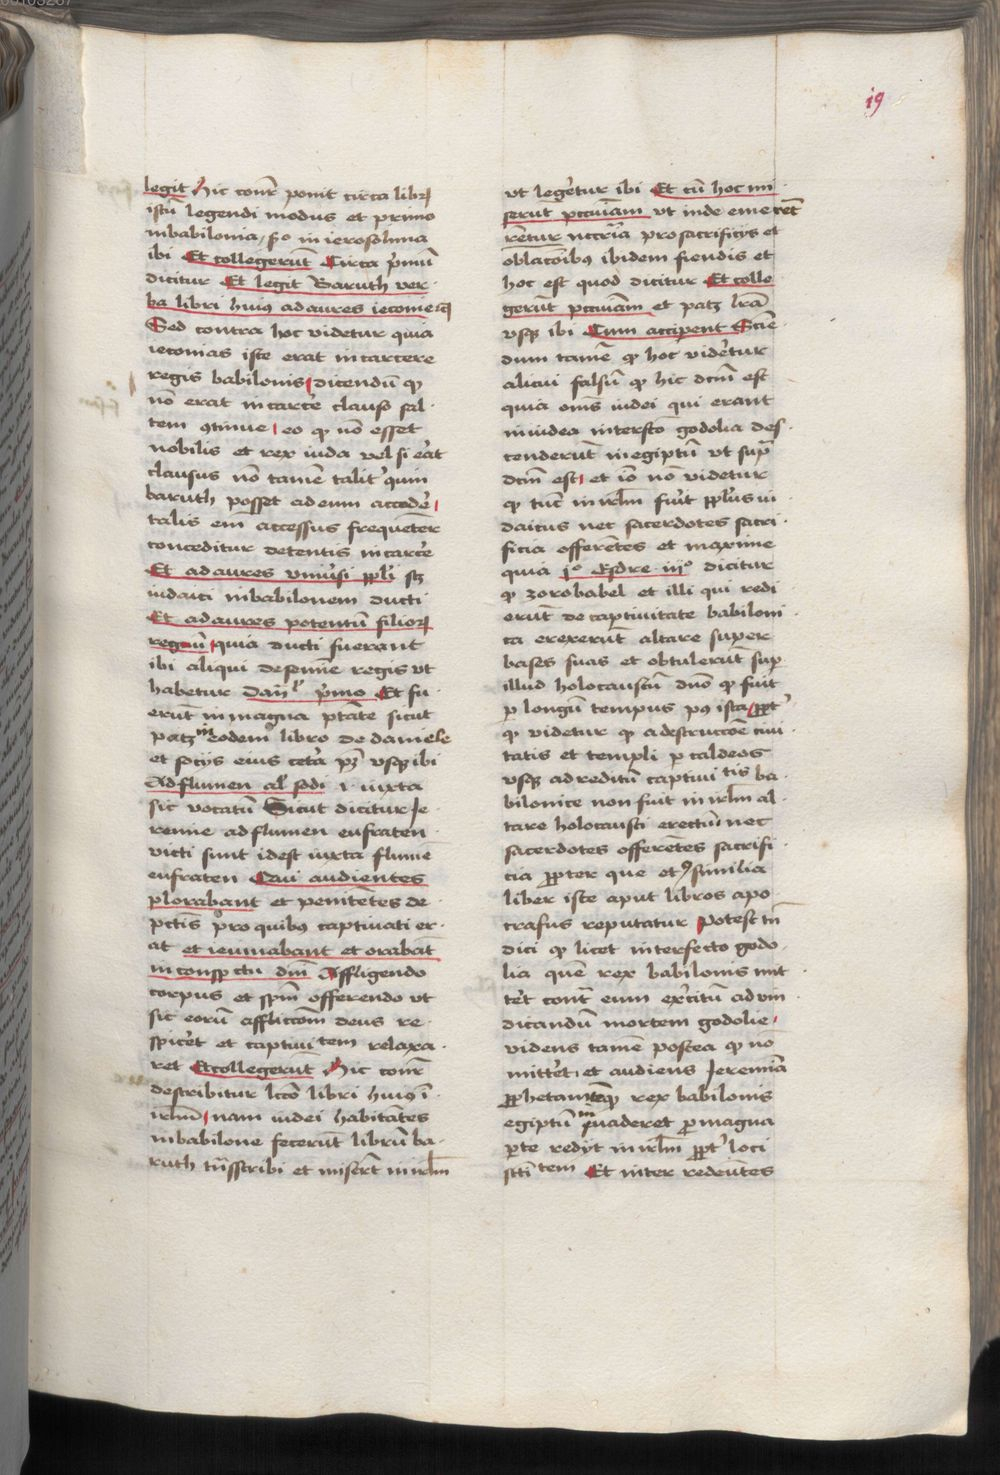 19
legit Hic conr̄ ponit circa libꝝ
istū legendi modus et primo
in babilonia / sᵒ in ierosolima
ibi Et collegerūt Circa p̄mū
dicitur Et legit Baruth ver-
ba libri huiꝰ ad aures ieconie ꝛc̄
Sed contra hoc videtur quia
ieconias iste erat in carcere
regis babilonis / dicendū ꝙ
nō erat in carcere clauso sal-
tem ꝯtinue / eo ꝙ nō esset
nobilis et rex iuda vel si erat
clausus nō tamē taliter quin
baruth posset ad eum accedere /
talis em̄ accessus frequēter
conceditur detentis in carcere
Et ad aures vniuersi ppl̄i scꝫ
iudaici in babilonem ducti
Et ad aures potentū filioꝝ
regum / quia ducti fuerant
ibi aliqui de semīe regis vt
habetur Dan̄ p̄mo Et fu-
erūt in magna ptāte sicut
patꝫ in eodem libro de daniele
et socijs eius cetera pꝫ vsqꝫ ibi
Ad flumen al' sodi .i. iuxta
sic vocatū Sicut dicitur Je-
remie ad flumen eufraten
victi sunt idest iuxta flumē
eufraten Qui audientes
plorabant et penitētes de
pctīs pro quibus captiuati er-
at et ieiunabant et orabāt
in conspectu dn̄i Affligendo
corpus et spm̄ offerendo vt
sic eorū afflictōm deus re-
spiceret et captiuitatem relaxa-
ret Et collegerūt Hic conr̄
describitur lcc̄o libri huiꝰ ī
irlm̄ / nam iudei habitātes
in babilone fecerūt librū ba-
ruth trāsscribi et miserūt in irlm̄
vt legeretur ibi Et cū hoc mi-
serūt pccuniam vt inde emerēt
rētur nccr̄ia pro sacrificijs et
oblacōibꝰ ibidem fiendis et
hoc est quod dicitur Et colle-
gerūt pccuniam et patꝫ lr̄a
vsqꝫ ibi Cum acciperent Scīe-
dum tamē ꝙ hoc videretur
alicui falsū ꝙ hic dcm̄ est
quia om̄s iudei qui erant
in iudea intersecto godolia des-
cenderūt in egiptū vt supra
dcm̄ est / et iō nō videtur
ꝙ tūc in irlm̄ fuerit ppl̄us iu-
daicus nec sacerdotes sacri-
ficia offerētes et maxime
quia jᵒ Esdre iijᵒ dicitur
ꝙ zorobabel et illi qui redi-
erūt de captiuitate babiloni-
ca erexerūt altare super
bases suas et obtulerūt sup
illud holocaustū dn̄o ꝙ fuit
ꝑ longū tempus pꝰ ista / ppt'
ꝙ videtur ꝙ a destructōe ciui-
tatis et templi ꝑ caldeos
vsqꝫ ad reditū captiuitatis ba-
bilonice non fuit in irlm̄ al-
tare holocausti erectū nec
sacerdotes offerētes sacrifi-
cia ppter que et ꝯsimilia
liber iste aput libros apo-
crafus reputatur Potest tn̄
dici ꝙ licet interfecto godo-
lia quē rex babilonis mit-
teret contra eum exercitū ad vin-
dicandū mortem godolie /
videns tamē postea ꝙ nō
mitteret et audiens Jeremiā
prophetam ꝙ rex babilonis
egiptū inuaderet ꝓ magna
parte redijt in irlm̄ ppt' loci
sctītatem Et inter redeūtes